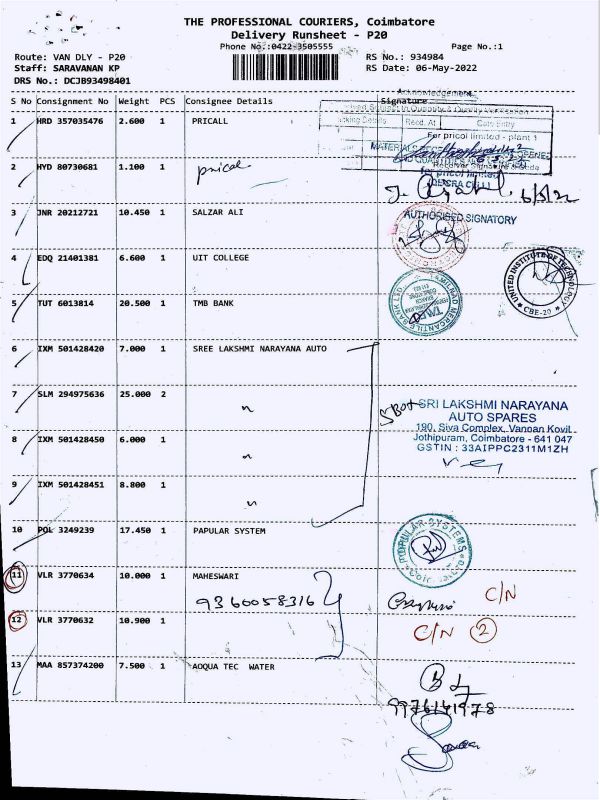 THE PROFESSIONAL COURIERS, Coimbatore
Delivery Runsheet - P20
Phone No.:0422-3505555 Page No.:1
Route: VAN DLY - P20 RS No.: 934984
Staff: SARAVANAN KP RS Date: 06-May-2022
DRS No.: DCJB93498401
Acknowledgement
S No Consignment No Weight PCS Consignee Details Signature
1 HRD 357035476 2.600 1 PRICALL
Recd. At
For pricol limited - plant 1
2 HYD 80730681 1.100 1 pricol
for pricol limited
6/5/22
3 JNR 20212721 10.450 1 SALZAR ALI
AUTHORISED SIGNATORY
4 EDQ 21401381 6.600 1 UIT COLLEGE
UNITED INSTITUTE OF TECHNOLOGY
CBE-20
5 TUT 6013814 20.500 1 TMB BANK
TAMILNAD MERCANTILE BANK LTD.
TMB
6 IXM 501428420 7.000 1 SREE LAKSHMI NARAYANA AUTO
7 SLM 294975636 25.000 2 "
5Box SRI LAKSHMI NARAYANA
AUTO SPARES
190, Siva Complex, Vannan Kovil
Jothipuram, Coimbatore - 641 047
GSTIN : 33AIPPC2311M1ZH
8 IXM 501428450 6.000 1 "
9 IXM 501428451 8.800 1 "
10 POL 3249239 17.450 1 PAPULAR SYSTEM
POPULAR SYSTEMS
11 VLR 3770634 10.000 1 MAHESWARI
9360058316
C/N
12 VLR 3770632 10.900 1
C/N 2
13 MAA 857374200 7.500 1 AOQUA TEC WATER
9976141978